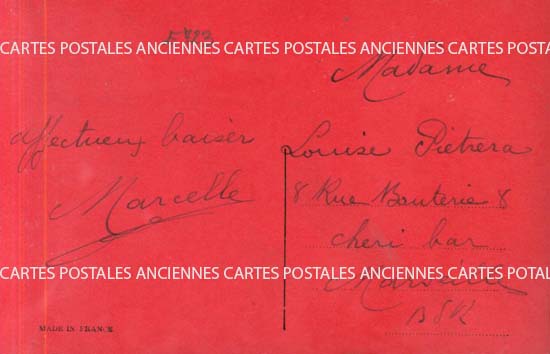 CARTES POSTALES ANCIENNES CARTES POSTALES ANCIENNES CARTES POSTAL
Madame
affectueux baiser
Marcelle
Louise Pietrera
8 Rue Bouterie 8
cheri bar
Marseille
CARTES POSTALES ANCIENNES CARTES POSTALES ANCIENNES CARTES POSTAL
MADE IN FRANCE